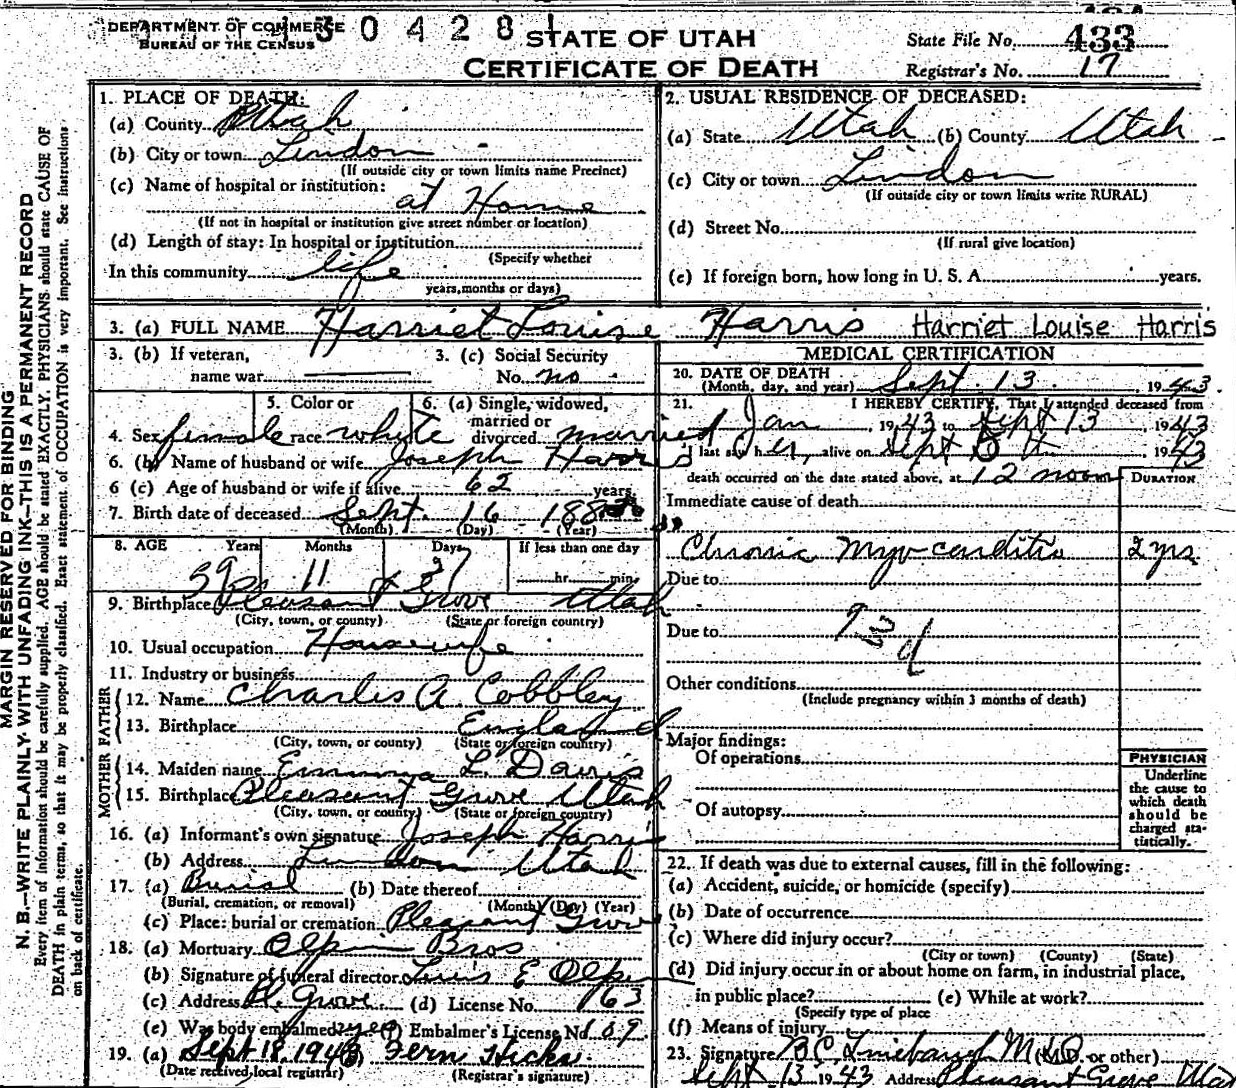 DEPARTMENT OF COMMERCE
BUREAU OF THE CENSUS
130428
STATE OF UTAH
CERTIFICATE OF DEATH
State File No. 433
Registrar's No. 17
MARGIN RESERVED FOR BINDING
N. B.—WRITE PLAINLY WITH UNFADING INK—THIS IS A PERMANENT RECORD
Every item of information should be carefully supplied. AGE should be stated EXACTLY. PHYSICIANS should state CAUSE OF
DEATH in plain terms, so that it may be properly classified. Exact statement of OCCUPATION is very important. See instructions
on back of certificate.
1. PLACE OF DEATH:
(a) County Utah
(b) City or town Lindon
(If outside city or town limits name Precinct)
(c) Name of hospital or institution:
at Home
(If not in hospital or institution give street number or location)
(d) Length of stay: In hospital or institution
(Specify whether
In this community life
years, months or days)
2. USUAL RESIDENCE OF DECEASED:
(a) State Utah (b) County Utah
(c) City or town Lindon
(If outside city or town limits write RURAL)
(d) Street No.
(If rural give location)
(e) If foreign born, how long in U. S. A. years.
3. (a) FULL NAME Harriet Louise Harris Harriet Louise Harris
3. (b) If veteran,
name war
3. (c) Social Security
No. no
4. Sex female
5. Color or
race white
6. (a) Single, widowed,
married or
divorced married
6. (b) Name of husband or wife Joseph Harris
6 (c) Age of husband or wife if alive 62 years
7. Birth date of deceased Sept. 16
(Month) (Day) (Year)
8. AGE Years Months Days If less than one day
59 11 hr. min.
9. Birthplace Pleasant Grove Utah
(City, town, or county) (State or foreign country)
10. Usual occupation Housewife
11. Industry or business
FATHER
12. Name Charles A. Cobbley
13. Birthplace England
(City, town, or county) (State or foreign country)
MOTHER
14. Maiden name Emma L. Davis
15. Birthplace Pleasant Grove Utah
(City, town, or county) (State or foreign country)
16. (a) Informant's own signature Joseph Harris
(b) Address Lindon Utah
17. (a) Burial (b) Date thereof
(Burial, cremation, or removal) (Month) (Day) (Year)
(c) Place: burial or cremation Pleasant Grove
18. (a) Mortuary Olpin Bros
(b) Signature of funeral director E Olpin
(c) Address Pl. Grove (d) License No. 163
(e) Was body embalmed yes (f) Embalmer's License No 109
19. (a) Sept 18, 1943 Fern Hicks.
(Date received local registrar) (Registrar's signature)
MEDICAL CERTIFICATION
20. DATE OF DEATH
(Month, day, and year) Sept. 13, 1943.
21. I HEREBY CERTIFY, That I attended deceased from
Jan, 1943 to Sept 13, 1943
I last saw her, alive on Sept th 1943
death occurred on the date stated above, at 12 noon
DURATION
Immediate cause of death
Chronic Myocarditis 2 yrs
Due to
Due to
93d
Other conditions
(Include pregnancy within 3 months of death)
Major findings:
Of operations
Of autopsy
PHYSICIAN
Underline
the cause to
which death
should be
charged sta-
tistically.
22. If death was due to external causes, fill in the following:
(a) Accident, suicide, or homicide (specify)
(b) Date of occurrence
(c) Where did injury occur?
(City or town) (County) (State)
(d) Did injury occur in or about home on farm, in industrial place,
in public place? (e) While at work?
(Specify type of place
(f) Means of injury
23. Signature B.C. Linebaugh M.D. (M. D. or other)
Sept 13 1943 Address Pleasant Grove